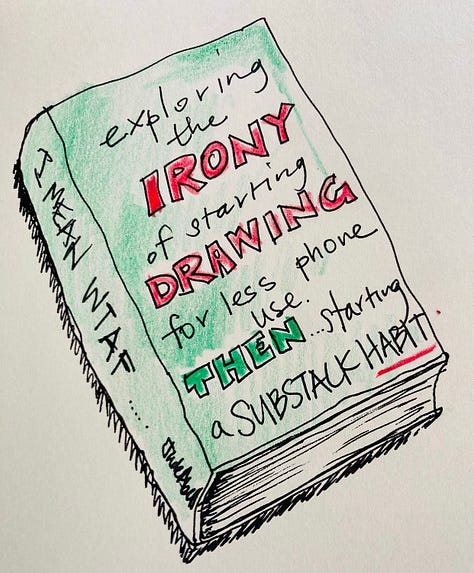 exploring
the
IRONY
of starting
DRAWING
for less phone
use.
THEN...starting
a SUBSTACK HABIT
I MEAN WTAF.....